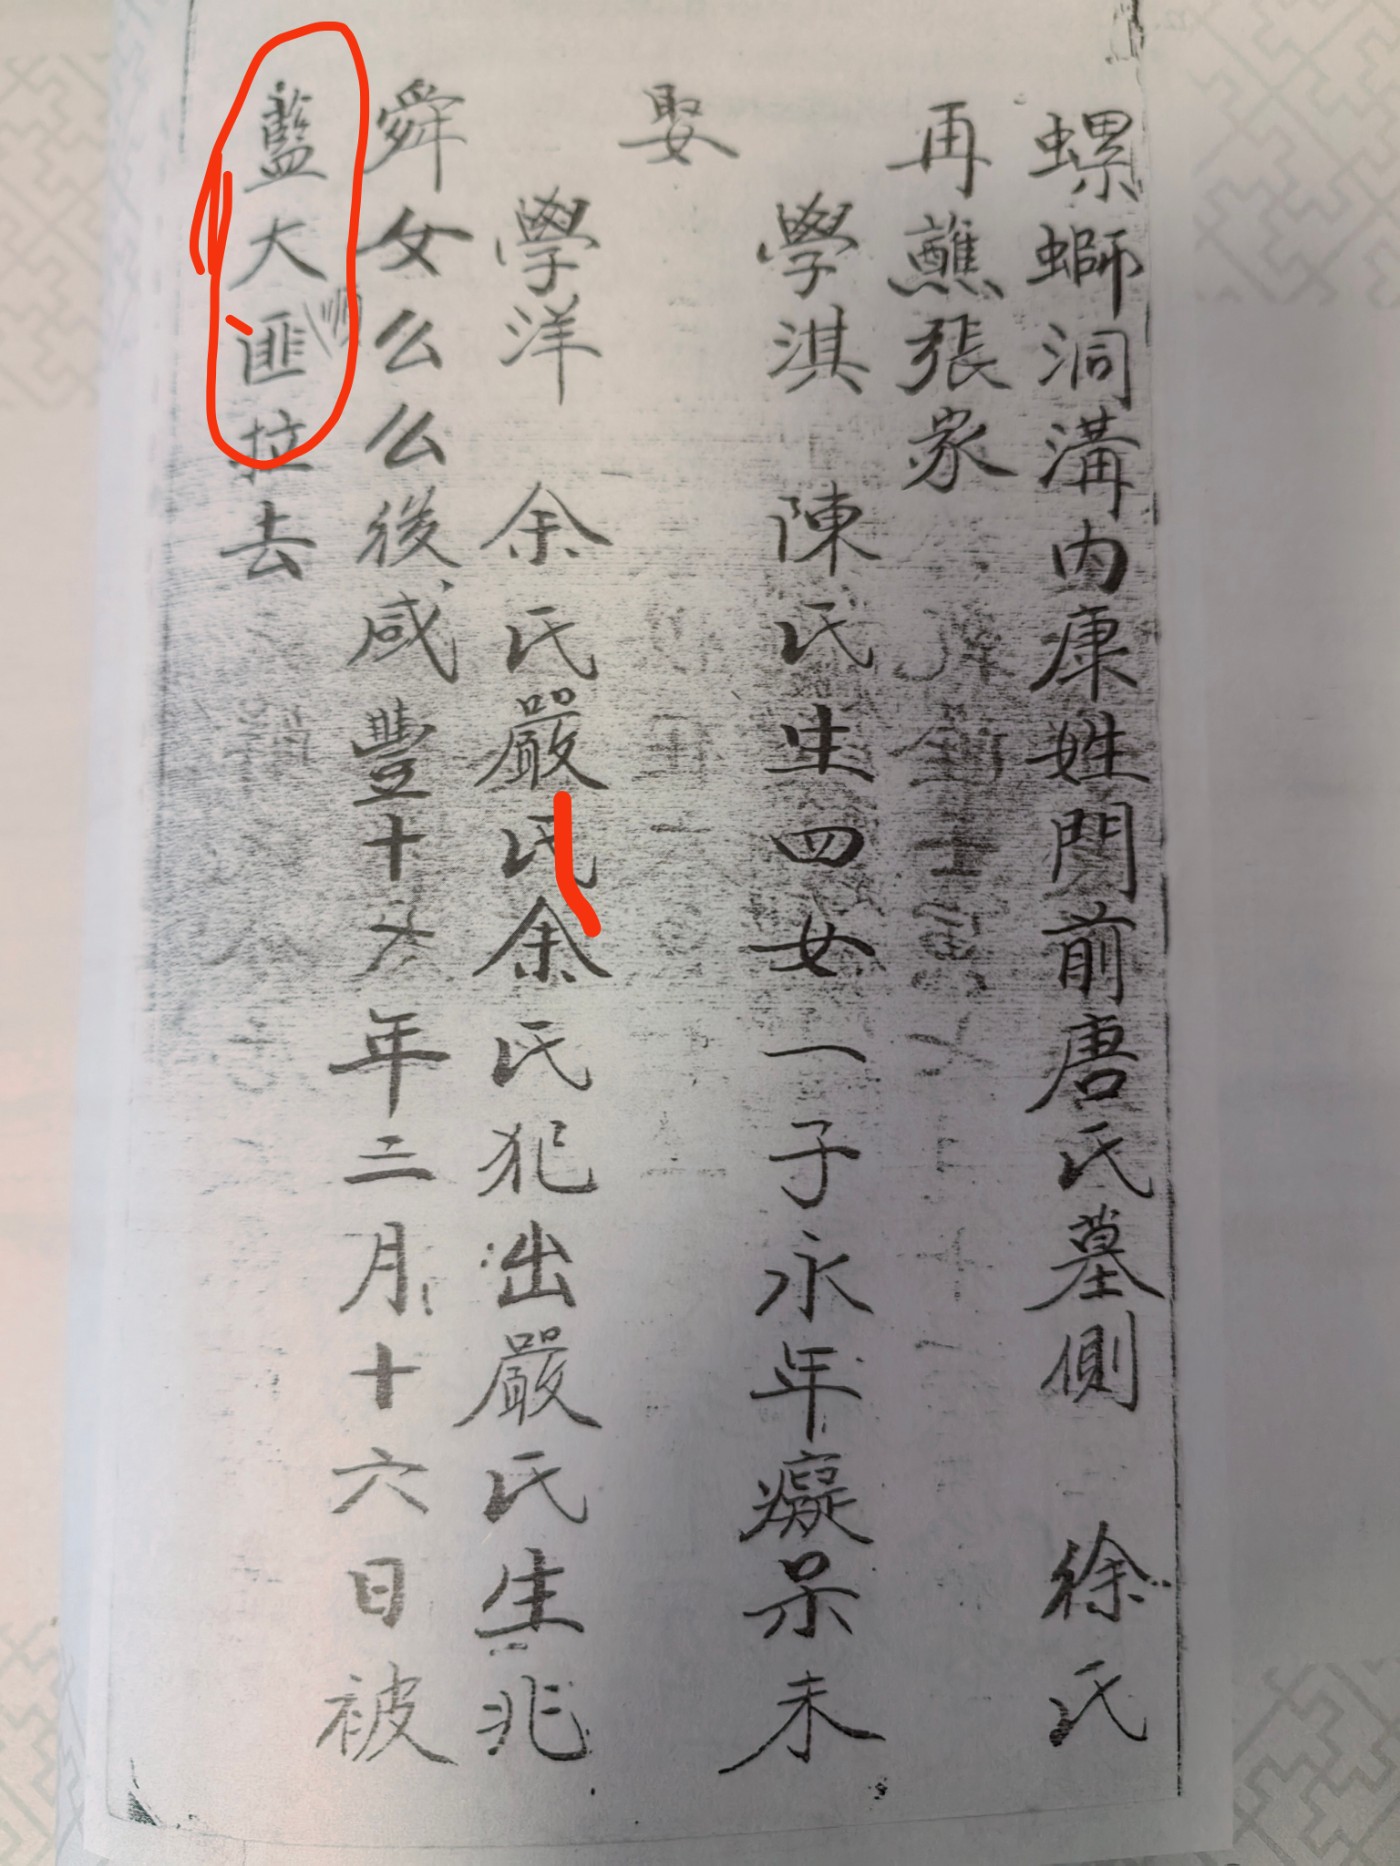 螺螄洞溝内康姓門前唐氏墓側 徐氏
再蘸張家
學淇 陳氏生四女一子永年癡呆未
娶
學洋 余氏嚴氏余氏犯出嚴氏生兆
舜女么么後咸豐十年三月十六日被
藍大匪拉去